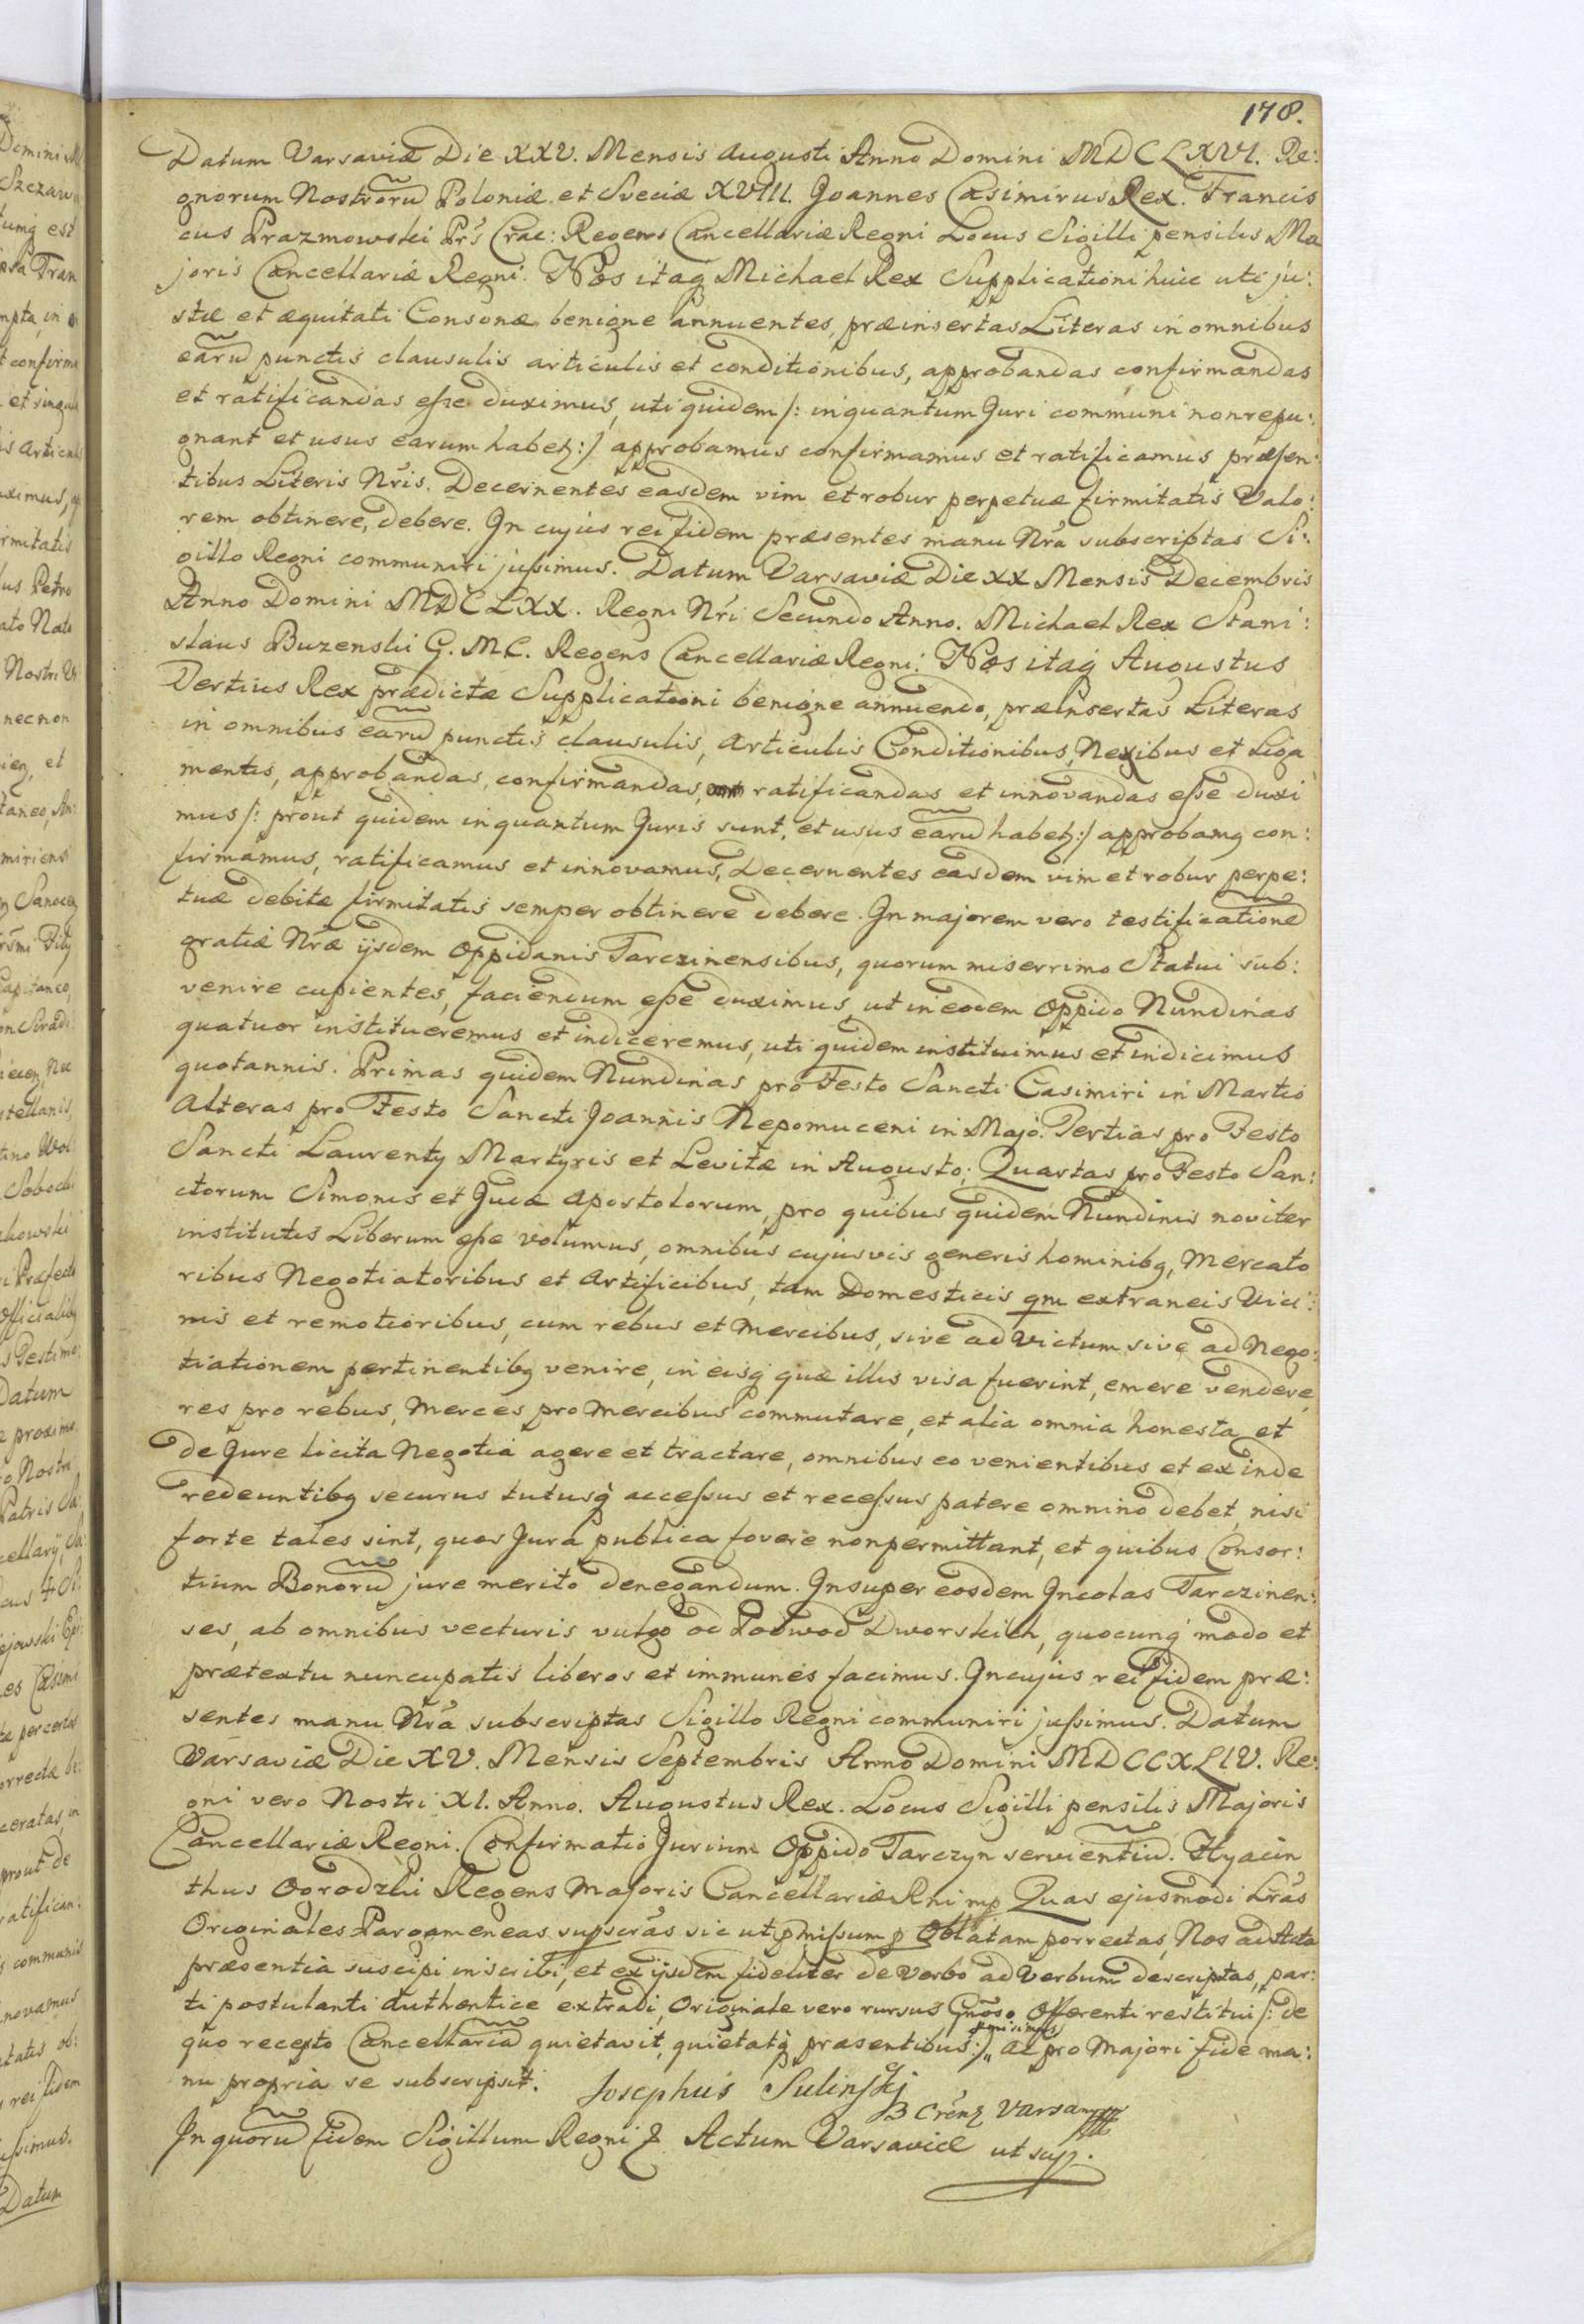 178.
Datum Varsaviæ Die XXV. Mensis Augusti Anno Domini MDCLXVI. Re:
gnorum Nostroru Poloniæ et Sveciæ XVIII. Joannes Casimirus Rex. Francis
cus Prazmowski Prs Crac: Regens Cancellariæ Regni Locus Sigilli pensilis Ma
joris Cancellariæ Regni. Nos itaq Michael Rex Supplicationi huic uti ju:
stæ et æquitati Consonæ benigne annuentes, præinsertas Literas in omnibus
earu punctis clausulis articulis et conditionibus, approbandas confirmandas
et ratificandas esse duximus, uti quidem /: inquantum Juri communi non repu:
gnant et usus earum habetz :/ approbamus confirmamus et ratificamus præsen:
tibus Literis Nris. Decernentes easdem vim et robur perpetuæ firmitatis Valo:
rem obtinere, debere. In cujus rei fidem præsentes manu Nra subscriptas Si:
gillo Regni communiri jussimus. Datum Varsaviæ Die XX Mensis Decembris
Anno Domini MDCLXX. Regni Nri Secundo Anno. Michael Rex Stani:
slaus Buzenski G. M. C. Regens Cancellariæ Regni. Nos itaq Augustus
Tertius Rex prædictæ Supplicationi benigne annuendo, præinsertas Literas
in omnibus earu punctis clausulis, Articulis Conditionibus, Nexibus et Liga
mentis, approbandas, confirmandas, ratificandas et innovandas esse duxi
mus /: prout quidem inquantum Juris sunt, et usus earu habetz :/ approbamq con:
firmamus, ratificamus et innovamus, Decernentes easdem vim et robur perpe:
tuæ debitæ firmitatis semper obtinere debere. In majorem vero testificatione
gratiæ Nræ ijsdem Oppidanis Tarczinensibus, quorum miserrimo Statui sub:
venire cupientes, faciendum esse duximus, ut in eodem Oppido Nundinas
quatuor institueremus et indiceremus, uti quidem instituimus et indicimus
quotannis. Primas quidem Nundinas pro Festo Sancti Casimiri in Martio
Alteras pro Festo Sancti Joannis Nepomuceni in Majo. Tertias pro Festo
Sancti Laurenty Martyris et Levitæ in Augusto. Quartas pro Festo San:
ctorum Simonis et Judæ Apostolorum, pro quibus quidem Nundinis noviter
institutis Liberum esse volumus, omnibus cujusvis generis hominibq, Mercato
ribus Negotiatoribus et Artificibus, tam Domesticis qm extraneis Vici:
nis et remotioribus, cum rebus et Mercibus, sive ad Victum sive ad Nego:
tiationem pertinentibq venire, in eisq quæ illis visa fuerint, emere vendere,
res pro rebus, Merces pro Mercibus commutare, et alia omnia honesta et
de Jure licita Negotia agere et tractare, omnibus eo venientibus et exinde
redeuntibq securus tutusq accessus et recessus patere omnino debet, nisi
forte tales sint, quos Jura publica fovere non permittant, et quibus Consor:
tium Bonoru jure merito denegandum. Insuper eosdem Incolas Tarczinen:
ses, ab omnibus vecturis vulgo od Podwod Dworskich, quocunq modo et
prætextu nuncupatis liberos et immunes facimus. In cujus rei fidem præ:
sentes manu Nra subscriptas Sigillo Regni communiri jussimus. Datum
Varsaviæ Die XV. Mensis Septembris Anno Domini MDCCXLIV. Re:
gni vero Nostri XI. Anno. Augustus Rex. Locus Sigilli pensilis Majoris
Cancellariæ Regni. Confirmatio Jurium Oppido Tarczyn servientiu. Hyacin
thus Ogrodzki Regens Majoris Cancellariæ Rni mp Quas ejusmodi Lras
Originales Pargameneas supscras sic ut pmissum p Oblatam porrectas, Nos ad Acta
præsentia suscipi inscribi, et ex ijsdem fideliter de verbo ad Verbum descriptas, par:
ti postulanti authentice extradi, Originale vero rursus Gnoso Offerenti restitui /: de
quo recepto Cancellaria quietavit, quietatq præsentibus :/, ac pro Majori fide ma:
nu propria se subscripsit. Josephus Sulinski
B Crenz Varsa
In quoru fidem Sigillum Regni & Actum Varsaviæ ut sup.